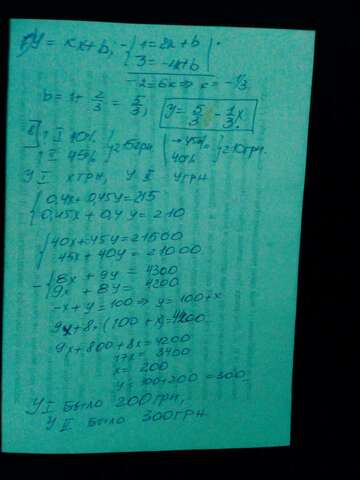 y = kx+b, - { 1 = 2k+b
3 = -4k+b
-2=6k => k = -1/3
b = 1 + 2/3 = 5/3, y = 5/3 - 1/3 x.
I 40%
II 45% } 215грн { → 45%
40% } = 210грн.
У I. xгрн, У II yгрн
{ 0,4x + 0,45y = 215
0,45x + 0,4y = 210
{ 40x + 45y = 21500
45x + 40y = 21000
- { 8x + 9y = 4300
9x + 8y = 4200
-x + y = 100 => y = 100 + x
9x + 8·(100 + x) = 4200
9x + 800 + 8x = 4200
17x = 3400
x = 200
y = 100 + 200 = 300
У I было 200грн,
У II было 300грн